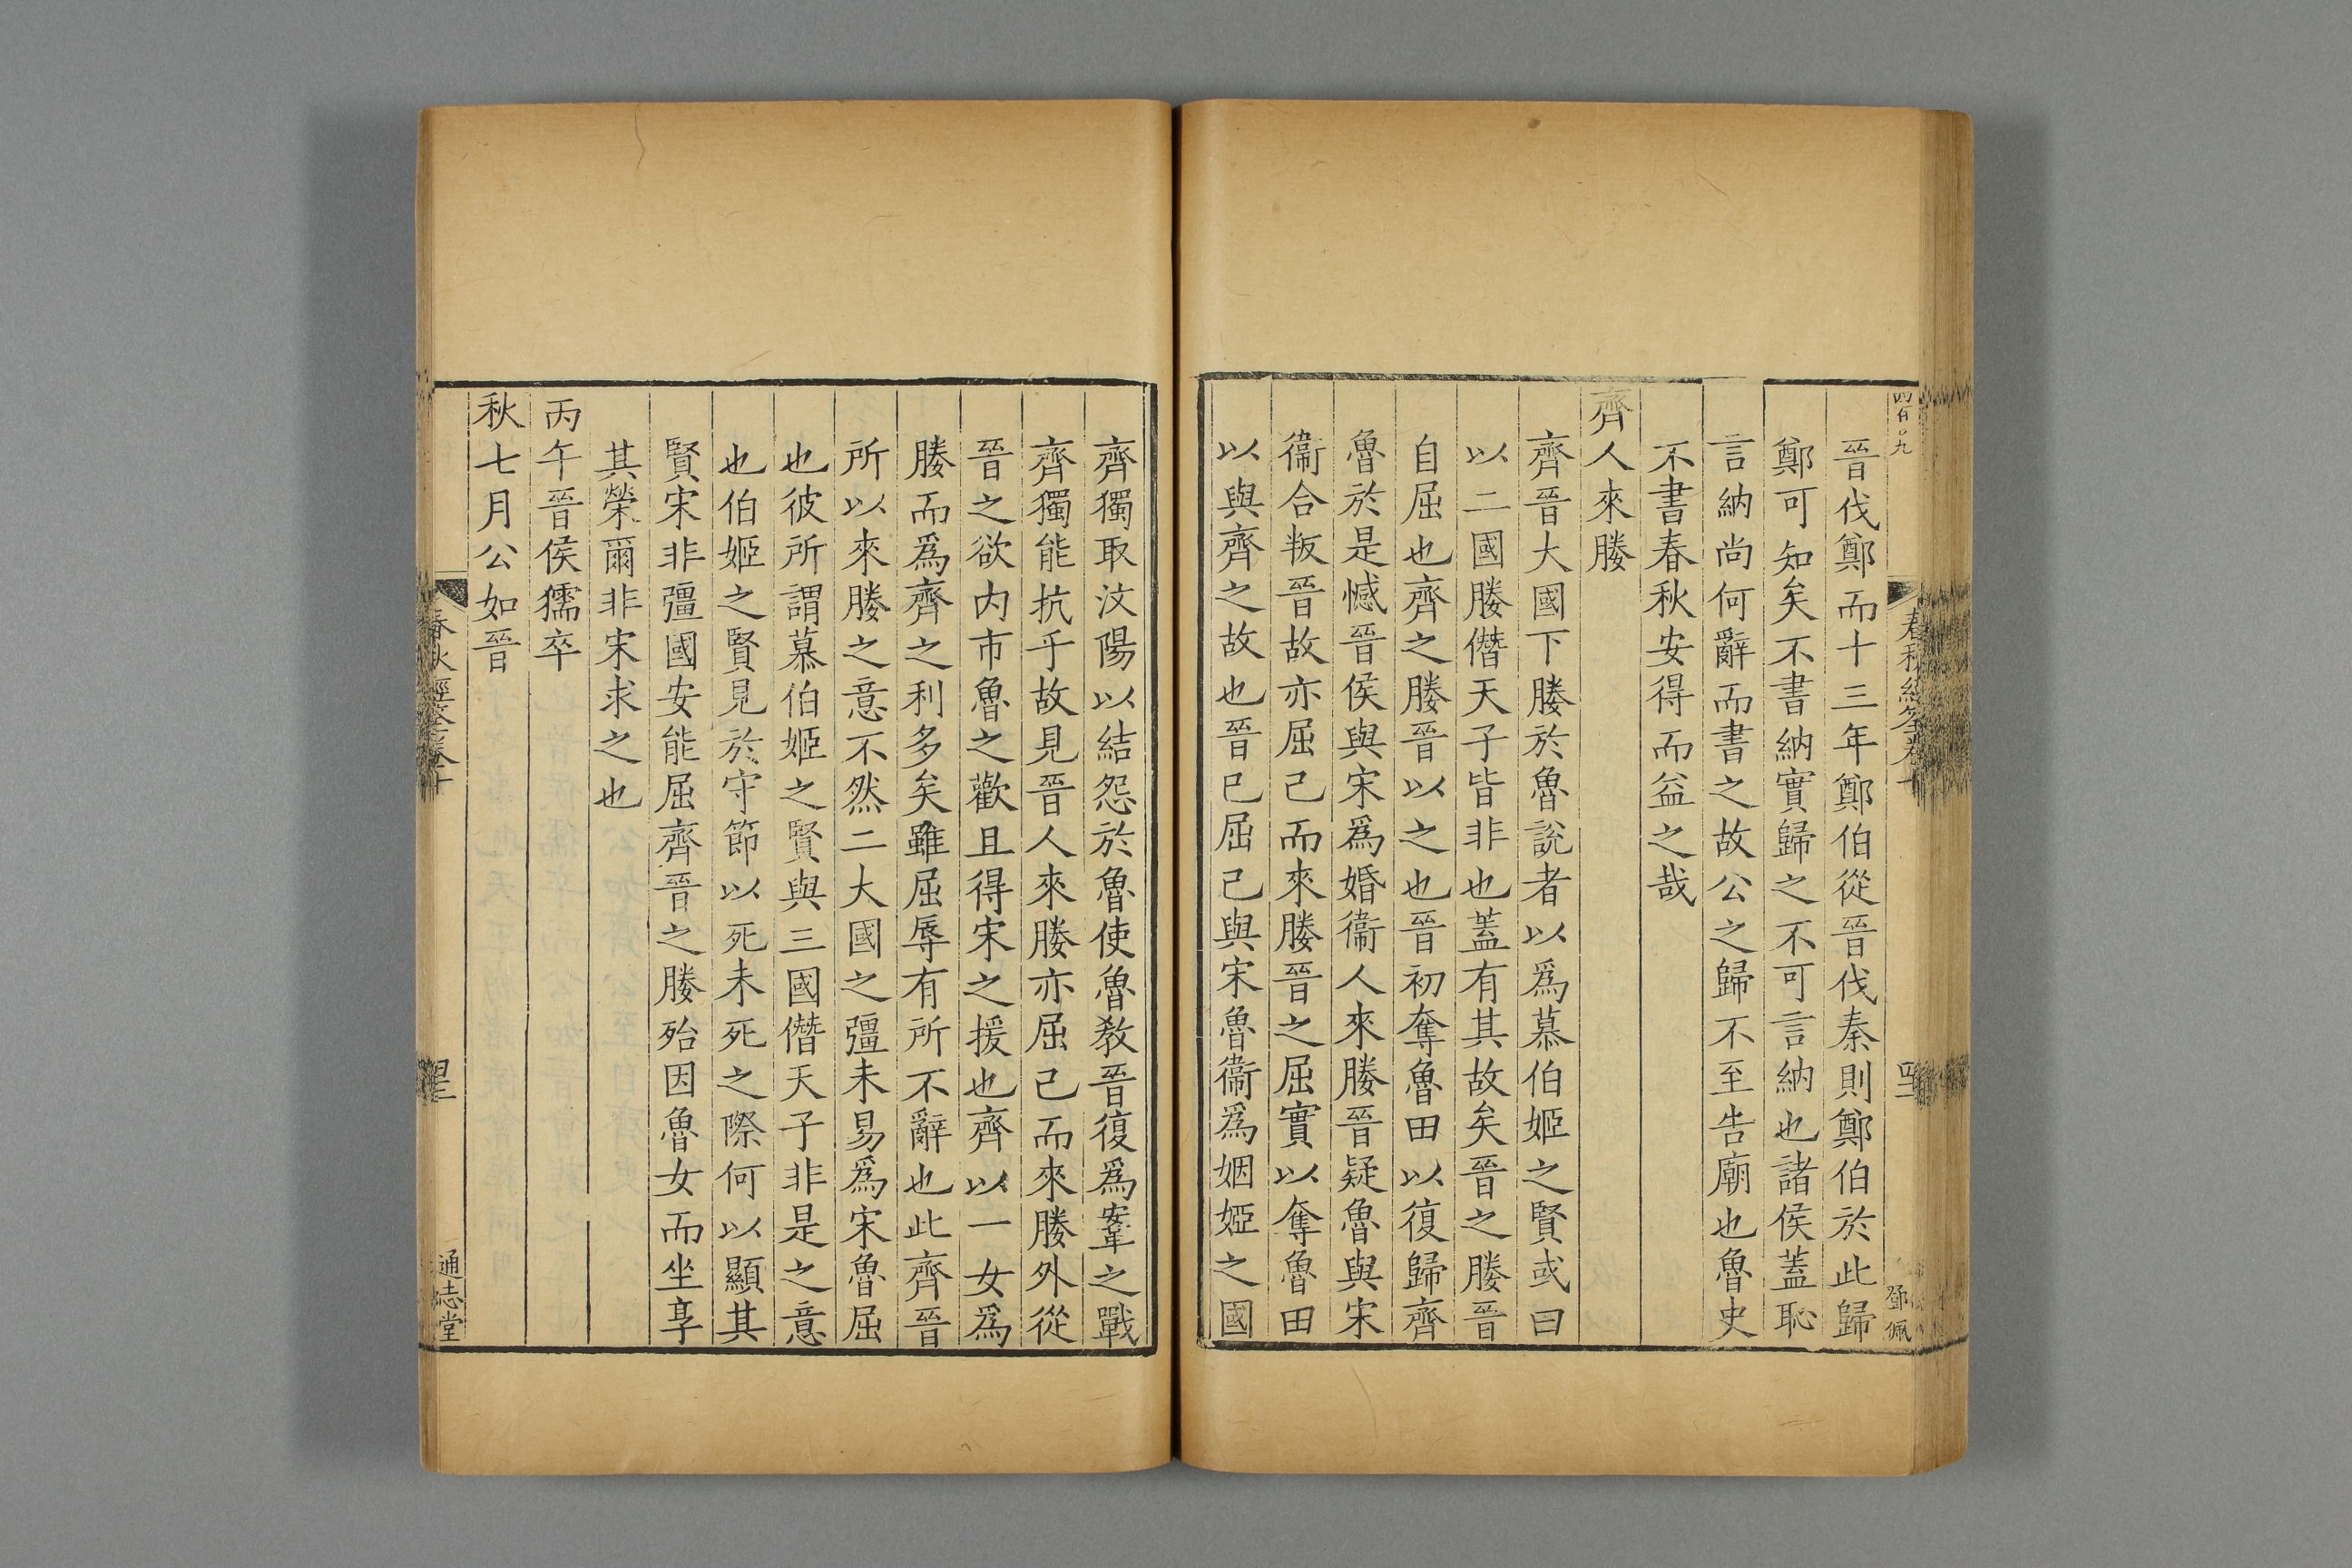 四百○九
春秋經筌卷十
鄧佩
晉伐鄭而十三年鄭伯從晉伐秦則鄭伯於此歸
鄭可知矣不書納實歸之不可言納也諸侯蓋恥
言納尚何辭而書之故公之歸不至告廟也魯史
不書春秋安得而益之哉
齊人來媵
齊晉大國下媵於魯說者以爲慕伯姬之賢或曰
以二國媵僭天子皆非也蓋有其故矣晉之媵晉
自屈也齊之媵晉以之也晉初奪魯田以復歸齊
魯於是憾晉侯與宋爲婚衞人來媵晉疑魯與宋
衞合叛晉故亦屈己而來媵晉之屈實以奪魯田
以與齊之故也晉已屈己與宋魯衞爲姻婭之國
齊獨取汶陽以結怨於魯使魯教晉復爲鞌之戰
齊獨能抗乎故見晉人來媵亦屈己而來媵外從
晉之欲内市魯之歡且得宋之援也齊以一女爲
媵而爲齊之利多矣雖屈辱有所不辭也此齊晉
所以來媵之意不然二大國之彊未易爲宋魯屈
也彼所謂慕伯姬之賢與三國僭天子非是之意
也伯姬之賢見於守節以死未死之際何以顯其
賢宋非彊國安能屈齊晉之媵殆因魯女而坐享
其榮爾非宋求之也
丙午晉侯獳卒
秋七月公如晉
春秋經筌卷十
通志堂